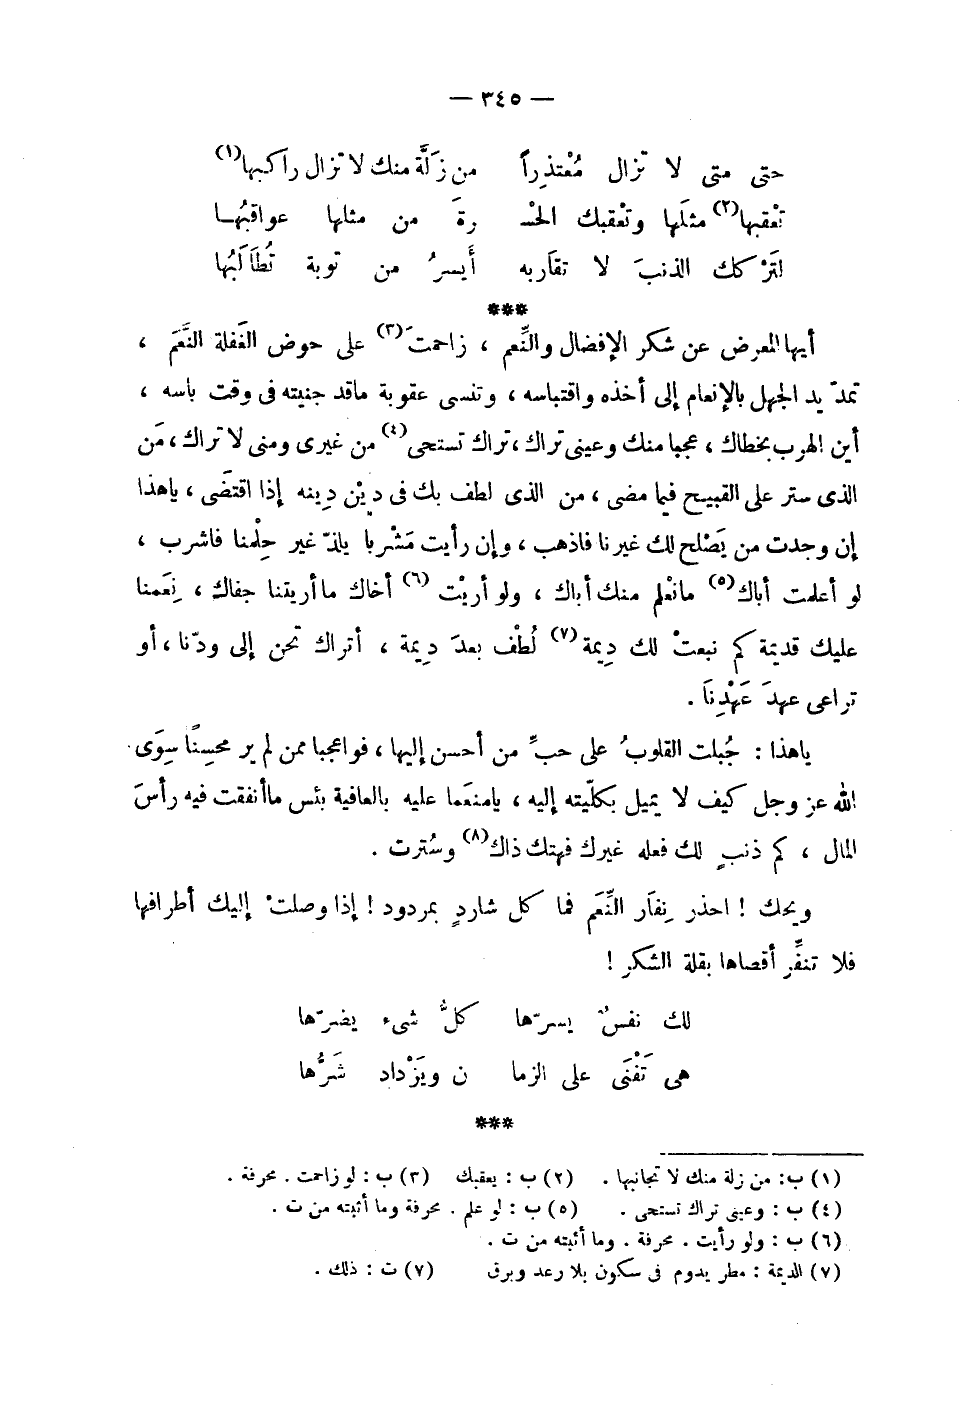 — ٣٤٥ —
حتى متى لا تزال مُعْتذِراً من زَلَّة منك لا تزال راكبها(١)
تعْقبها(٢) مثلَها وتعْقبك الحسْـ ـرةَ من مثلها عواقبُهـا
لَتَرْكك الذنبَ لا تقاربه أَيسرُ من توبة تُطَالَبُها
***
أيها المعرض عن شكر الإفضال والنِّعم ، زاحمتَ(٣) على حوض الغَفلة النَّعَمَ ،
تمدّ يد الجهل بالإنعام إلى أخذه واقتباسه ، وتنسى عقوبة ماقد جنيته فى وقت باسه ،
أين الهرب بخطاك ، عجبا منك وعينى تراك ، تراك تستحى(٤) من غيرى ومنى لا تراك ، مَن
الذى ستر على القبيح فيما مضى ، من الذى لطف بك فى ديْن دِينه إذا اقتضَى ، ياهذا
إن وجدت من يَصْلح لك غيرنا فاذهب ، وإن رأيت مَشْربا يلذّ غير حِلْمنا فاشرب ،
لو أعلمت أباك(٥) مانعْلم منك أباك ، ولو أريْت(٦) أخاك ماأريتنا جفاك ، نِعَمنا
عليك قديمة كم نبعتْ لك دِيمة(٧) لُطْف بعدَ دِيمة ، أتراك تحن إلى ودّنا ، أو
تراعى عهدَ عَهْدِنَا .
ياهذا : جُبلت القلوبُ على حبِّ من أحسن إليها ، فواعجبا ممن لم ير محسِنًا سِوَى
الله عز وجل كيف لا يميل بكلّيته إليه ، يامنعَما عليه بالعافية بئس ماأنفقت فيه رأسَ
المال ، كم ذنبٍ لك فعله غيرك فهتك ذاك(٨) وسُترت .
ويحك ! احذر نِفَار النِّعَم فما كل شاردٍ بمردود ! إذا وصلتْ إليك أطرافها
فلا تنفِّر أقصاها بقلة الشكر !
لك نفسٌ يسرّها كلُّ شىء يضرّها
هى تَفْنَى على الزما ن ويَزْداد شَرُّها
***
(١) ب : من زلة منك لا تجانبها . (٢) ب : يعقبك (٣) ب : لو زاحمت . محرفة .
(٤) ب : وعينى تراك تستحى . (٥) ب : لو علم . محرفة وما أثبته من ت .
(٦) ب : ولو رأيت . محرفة . وما أثبته من ت .
(٧) الديمة : مطر يدوم فى سكون بلا رعد وبرق (٧) ت : ذلك .